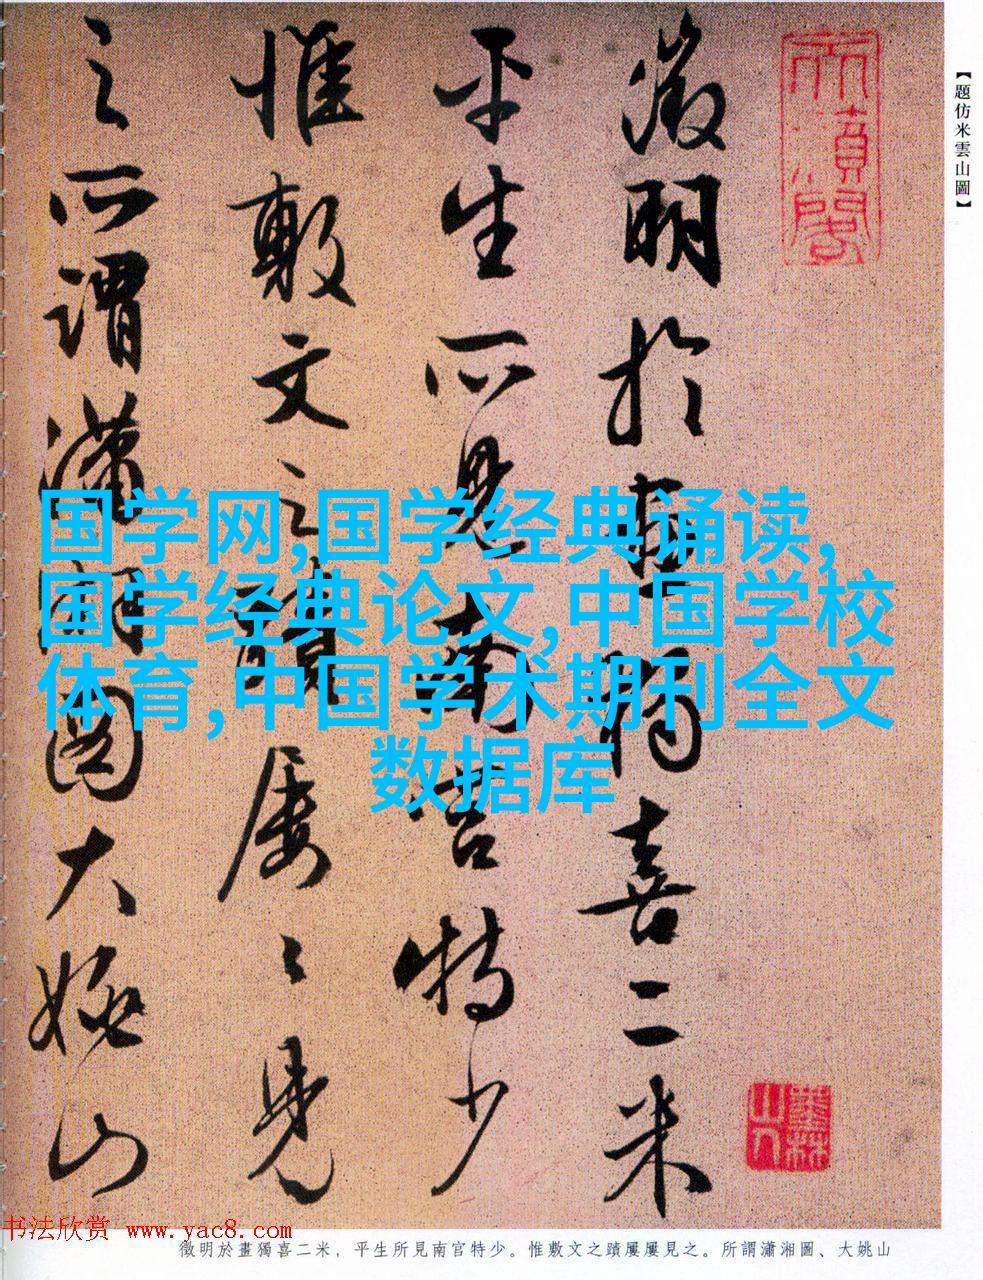 【題仿米雲山圖】
徵明於畫獨喜二米
平生所見南宫特少
惟敷文之蹟屢〻見
之所謂瀟湘圖大姚山
国学网,国学经典诵读,
国学经典论文,中国学校
体育,中国学术期刊全文
数据库
墨林
山人
书法欣赏 www.yac8.com
徵明於畫獨喜二米，平生所見南官特少。惟敷文之蹟屢屢見之。所謂瀟湘圖、大姚山